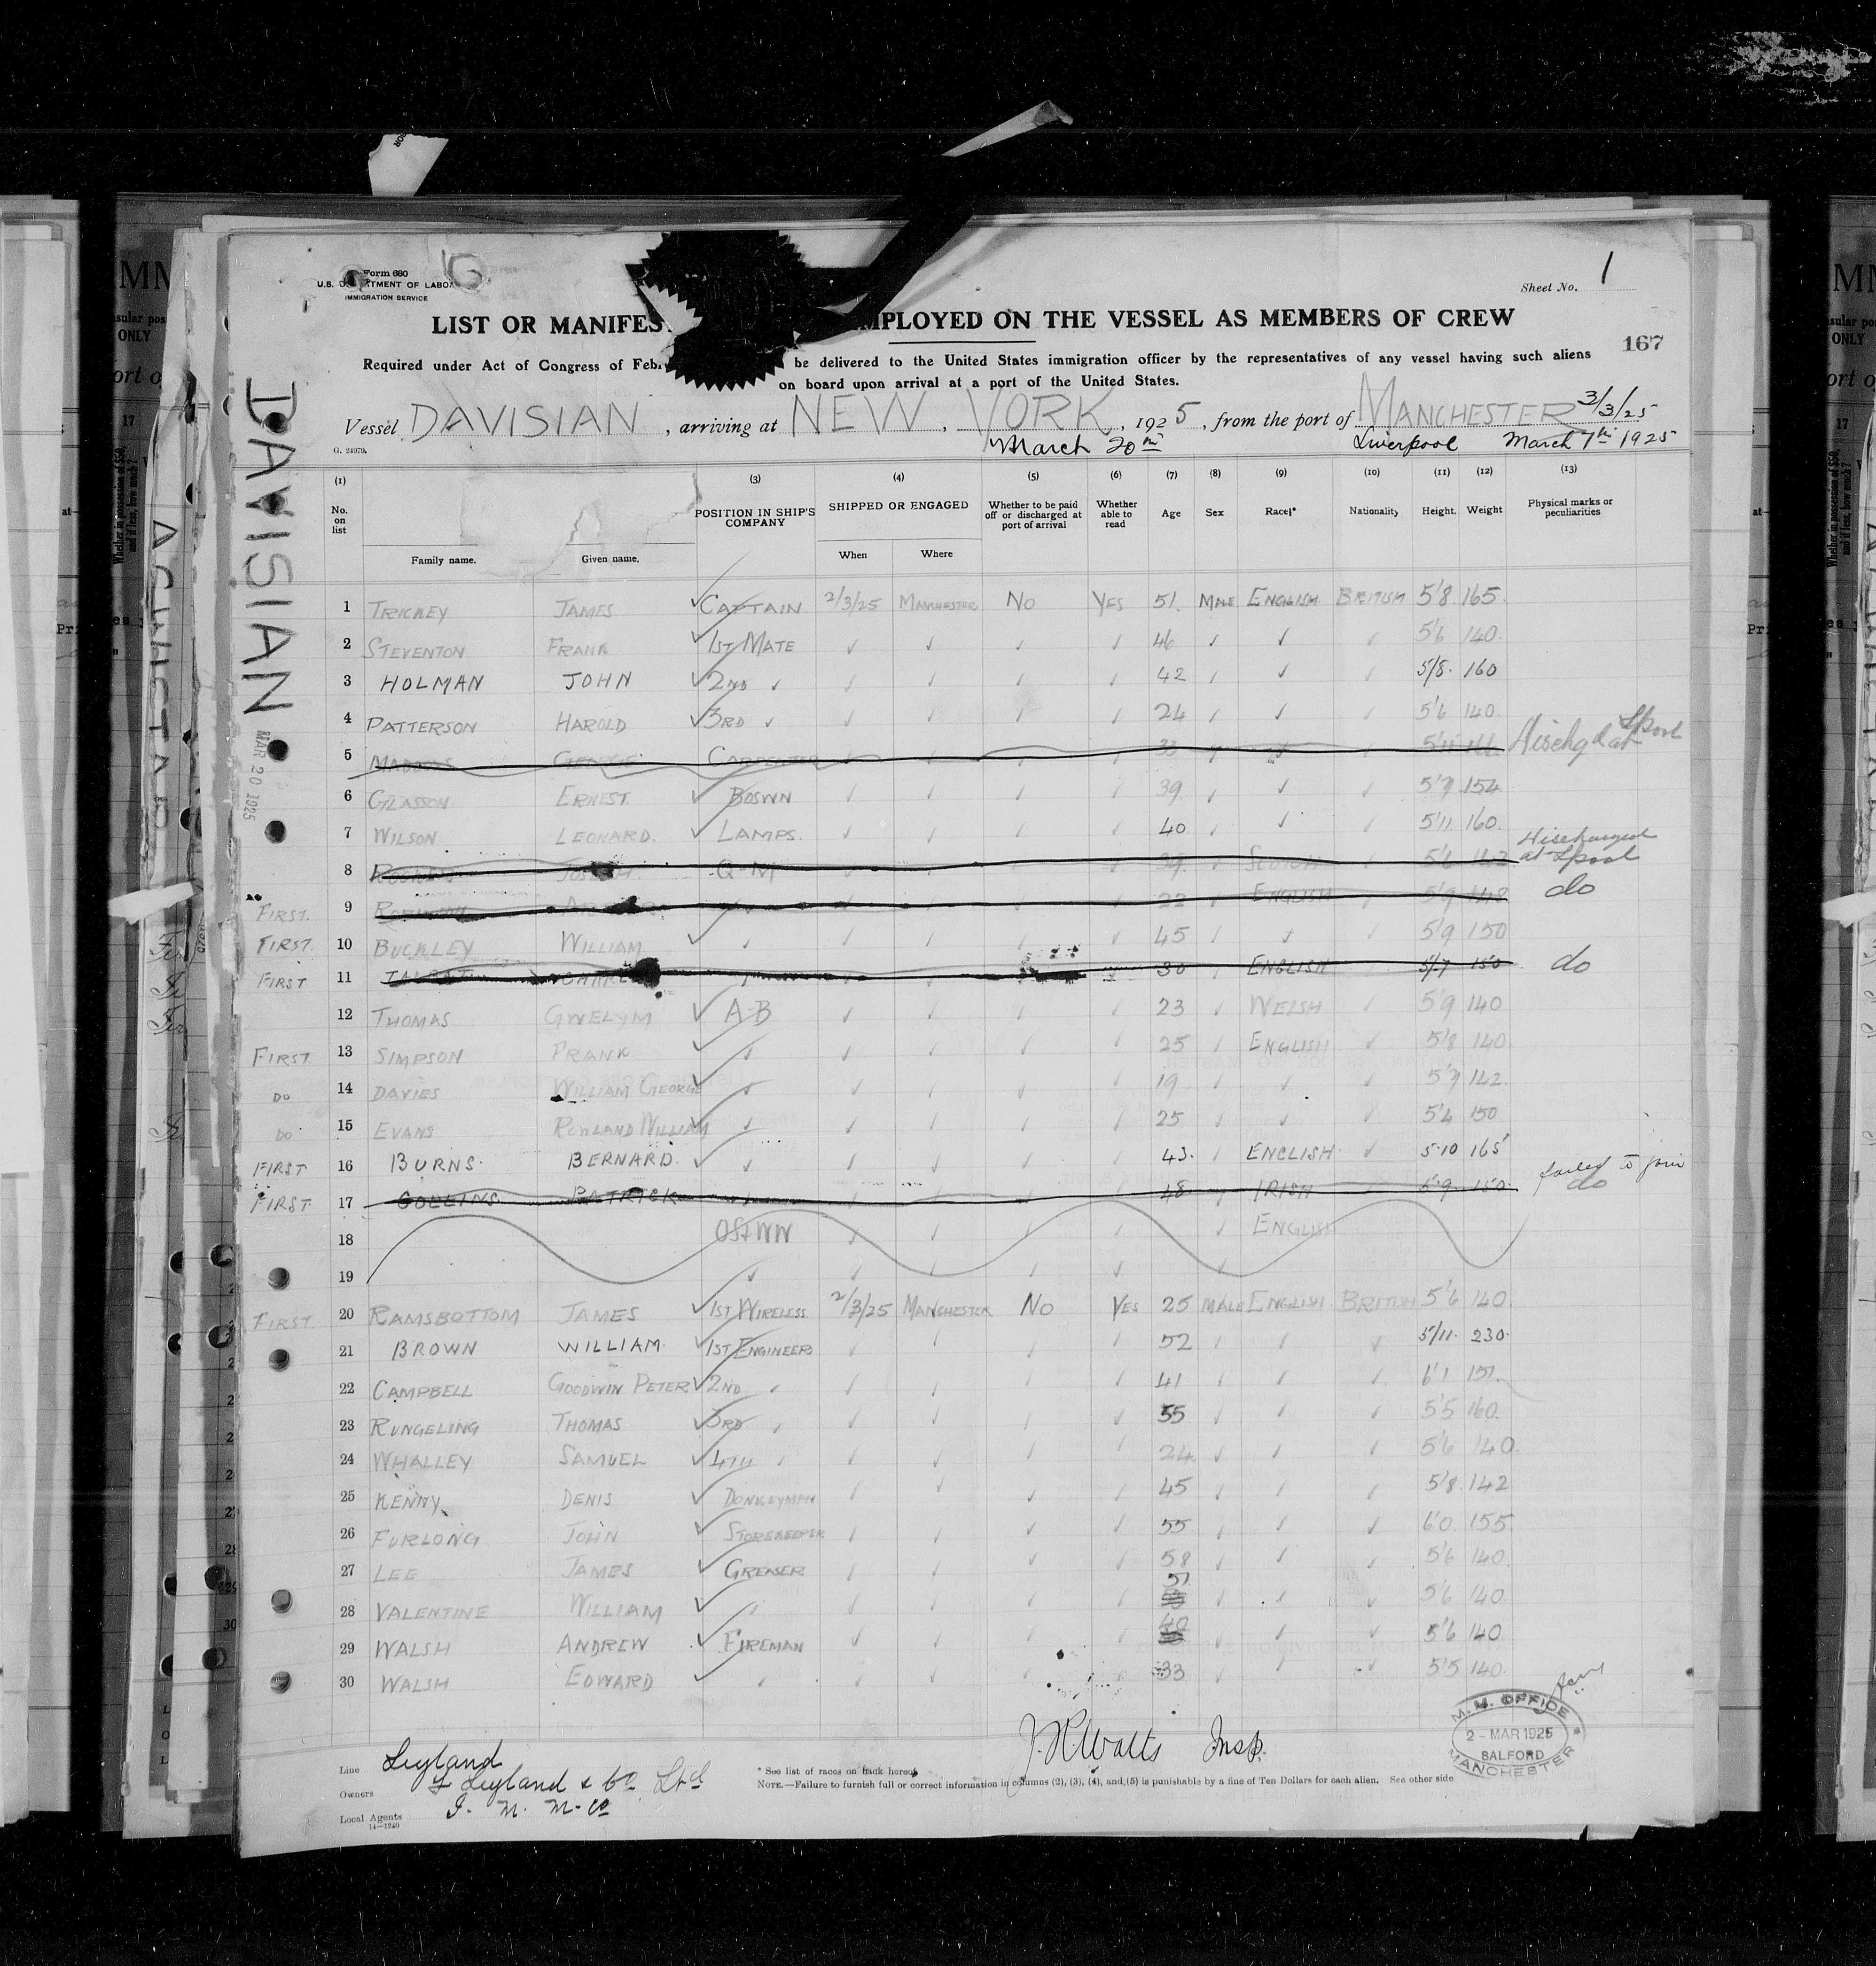 Form 680
U.S. TMENT OF LABO
IMMIGRATION SERVICE
Sheet No. 1
LIST OR MANIFES MPLOYED ON THE VESSEL AS MEMBERS OF CREW
167
Required under Act of Congress of Feb be delivered to the United States immigration officer by the representatives of any vessel having such aliens
on board upon arrival at a port of the United States.
Vessel DAVISIAN, arriving at NEW YORK, 1925, from the port of MANCHESTER 3/3/25
March 20th Liverpool March 7th 1925
G. 24979.
DAVISIAN
MAR 20 1925
(1) (3) (4) (5) (6) (7) (8) (9) (10) (11) (12) (13)
No. on list Family name. Given name. POSITION IN SHIP'S COMPANY SHIPPED OR ENGAGED When Where Whether to be paid off or discharged at port of arrival Whether able to read Age Sex Race* Nationality Height. Weight Physical marks or peculiarities
1 TRICKEY JAMES ✓ CAPTAIN 2/3/25 MANCHESTER NO YES 51 MALE ENGLISH BRITISH 5'8 165
2 STEVENTON FRANK ✓ 1ST MATE ✓ ✓ ✓ ✓ 46 ✓ ✓ ✓ 5'6 140
3 HOLMAN JOHN ✓ 2ND ✓ ✓ ✓ ✓ ✓ 42 ✓ ✓ ✓ 5/8 160
4 PATTERSON HAROLD ✓ 3RD ✓ ✓ ✓ ✓ ✓ 24 ✓ ✓ ✓ 5'6 140
5 GEORGE CARPENTER 33 5'11 Dischgd at Lpool
6 GLASSON ERNEST ✓ BOSWN ✓ ✓ ✓ ✓ 39 ✓ ✓ ✓ 5'7 154
7 WILSON LEONARD. ✓ LAMPS. ✓ ✓ ✓ ✓ 40 ✓ ✓ ✓ 5'11 160
8 JOSEPH Q-M 39 5'6 Discharged at Lpool
FIRST. 9 22 ENGLISH 5'9 148 do
FIRST. 10 BUCKLEY WILLIAM ✓ ✓ ✓ ✓ ✓ ✓ 45 ✓ ✓ ✓ 5'9 150
FIRST 11 CHARLES 30 ENGLISH 5/7 150 do
12 THOMAS GWELYM ✓ A-B ✓ ✓ ✓ ✓ 23 ✓ WELSH ✓ 5'9 140
FIRST. 13 SIMPSON FRANK ✓ ✓ ✓ ✓ ✓ ✓ 25 ✓ ENGLISH ✓ 5'8 140
DO 14 DAVIES WILLIAM GEORGE ✓ ✓ ✓ ✓ ✓ ✓ 19 ✓ ✓ ✓ 5'7 142
DO 15 EVANS ROWLAND WILLIAM ✓ ✓ ✓ ✓ ✓ 25 ✓ ✓ ✓ 5'4 150
FIRST 16 BURNS. BERNARD. ✓ ✓ ✓ ✓ ✓ ✓ 43. ✓ ENGLISH ✓ 5-10 165
FIRST. 17 COLLINS PATRICK 48 IRISH 5-9 150 failed to join do
18 OS ✓ ✓ ✓ ✓ ✓ ENGLISH
19 ✓ ✓ ✓ ✓ ✓ ✓
FIRST 20 RAMSBOTTOM JAMES ✓ 1ST WIRELESS 2/3/25 MANCHESTER NO YES 25 MALE ENGLISH BRITISH 5'6 140
21 BROWN WILLIAM. ✓ 1ST ENGINEER ✓ ✓ ✓ ✓ 52 ✓ ✓ ✓ 5/11. 230.
22 CAMPBELL GOODWIN PETER ✓ 2ND ✓ ✓ ✓ ✓ ✓ 41 ✓ ✓ ✓ 6'1
23 RUNGELING THOMAS ✓ 3RD ✓ ✓ ✓ ✓ ✓ 55 ✓ ✓ ✓ 5'5 160
24 WHALLEY SAMUEL ✓ 4TH ✓ ✓ ✓ ✓ ✓ 24 ✓ ✓ ✓ 5'6 140
25 KENNY DENIS ✓ DONKEYMAN ✓ ✓ ✓ ✓ 45 ✓ ✓ ✓ 5'8 142
26 FURLONG JOHN ✓ STOREKEEPER ✓ ✓ ✓ ✓ 55 ✓ ✓ ✓ 6'0 155
27 LEE JAMES ✓ GREASER ✓ ✓ ✓ ✓ 58 ✓ ✓ ✓ 5'6 140
28 VALENTINE WILLIAM ✓ ✓ ✓ ✓ ✓ ✓ 51 ✓ ✓ ✓ 5'6 140
29 WALSH ANDREW ✓ FIREMAN ✓ ✓ ✓ ✓ 40 ✓ ✓ ✓ 5'6 140
30 WALSH EDWARD ✓ ✓ ✓ ✓ ✓ ✓ 33 ✓ ✓ ✓ 5'5 140
M. M. OFFICE
2 - MAR 1925
SALFORD
MANCHESTER
J. R. Watts Insp.
Line Leyland
Owners F Leyland & Co Ltd
Local Agents I. M. M. Co
14-1240
* See list of races on back hereof.
NOTE.—Failure to furnish full or correct information in columns (2), (3), (4), and (5) is punishable by a fine of Ten Dollars for each alien. See other side